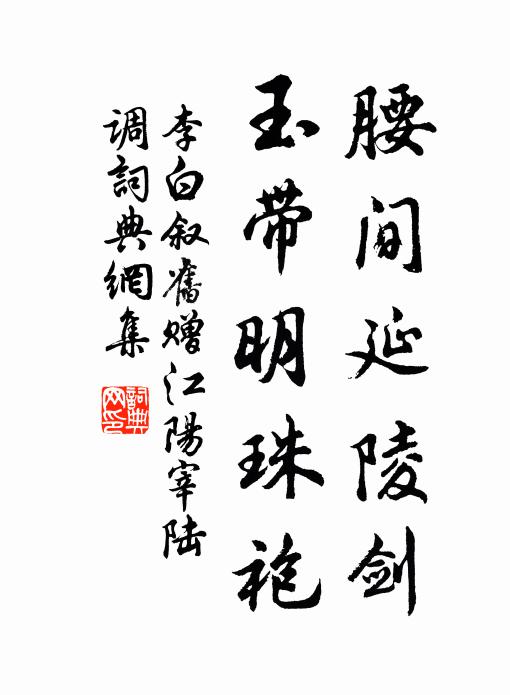 腰间延陵剑
玉带明珠袍
李白叙舊赠江陽宰陆
调詞典網集
詞典网印